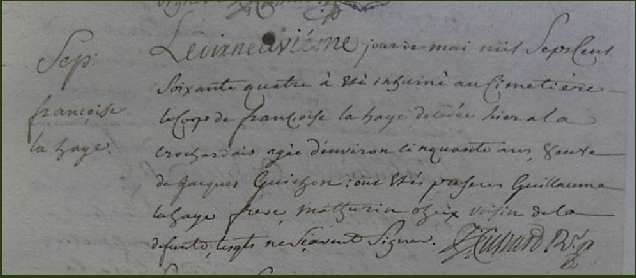 Sep.
françoise
la haye.
Le dixneuviéme jour de mai mil Sept Cent
Soixante quatre à été inhumé au Cimetière
le Corps de françoise la haye decedée hier a la
crochardais agée d'environ Cinquante ans, veuve
de Jacques Guichon : ont étés presens Guillaume
la haye frere, mathurin voisin de la
defunte, lesqls ne sçavent Signer.